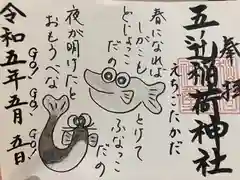 奉拝
五ノ辻稲荷神社
えちごたかだ
春になれば
しがこもとけて
どじょっこだの
ふなっこだの
夜が明けたと
おもうべな
GO! GO! GO!
令和五年五月五日